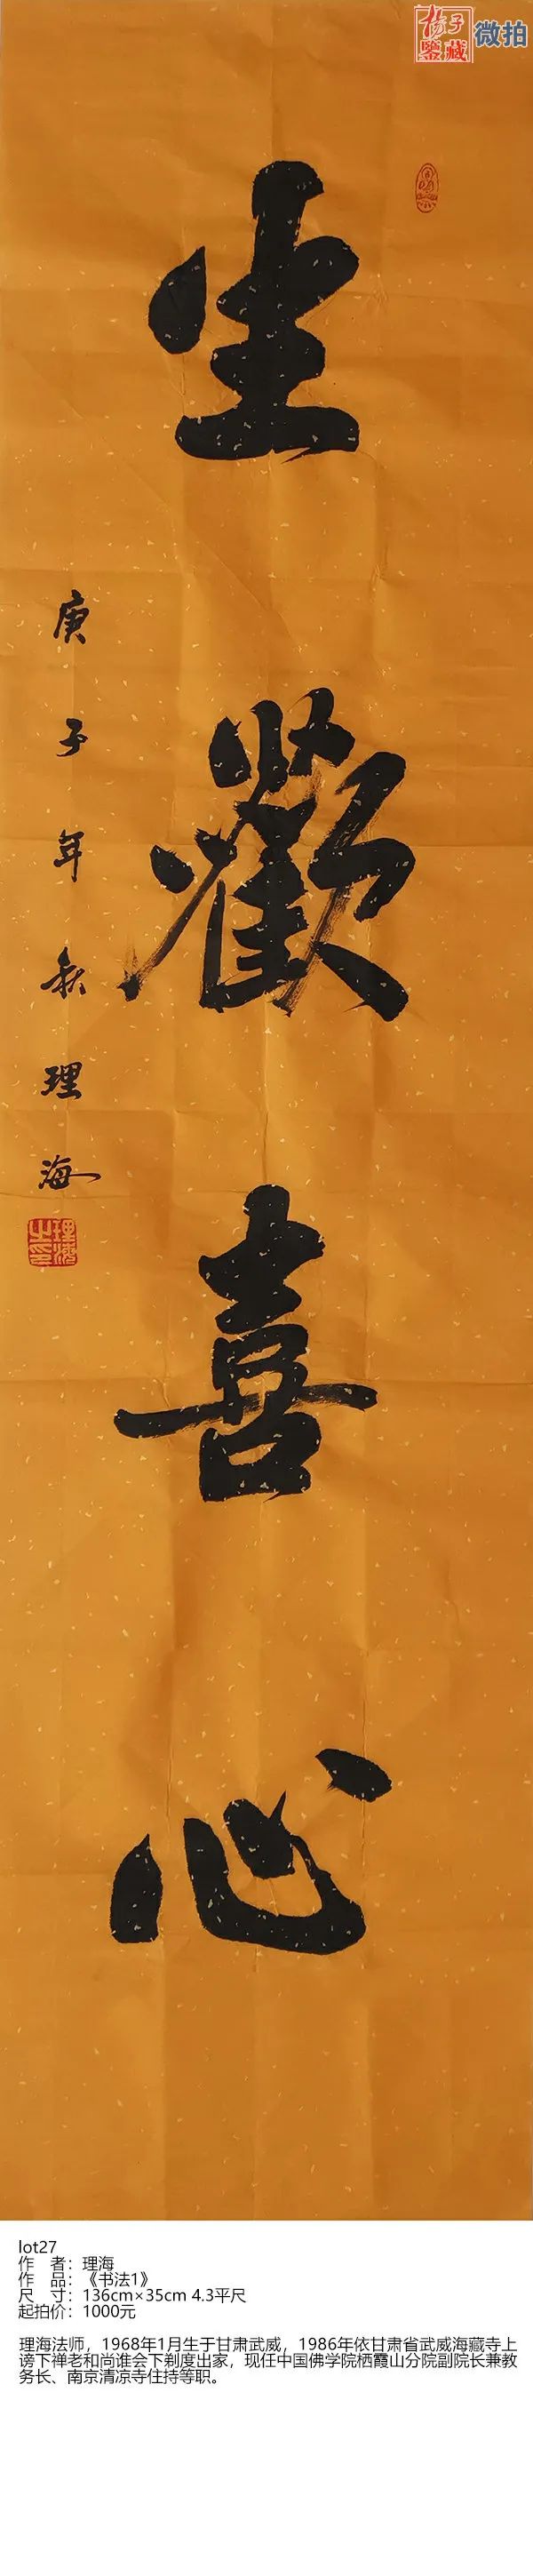 扬子
鉴藏
微拍
生歡喜心
庚子年秋理海
理海之印
lot27
作 者：理海
作 品：《书法1》
尺 寸：136cm×35cm 4.3平尺
起拍价：1000元
理海法师，1968年1月生于甘肃武威，1986年依甘肃省武威海藏寺上
谤下禅老和尚谁会下剃度出家，现任中国佛学院栖霞山分院副院长兼教
务长、南京清凉寺住持等职。